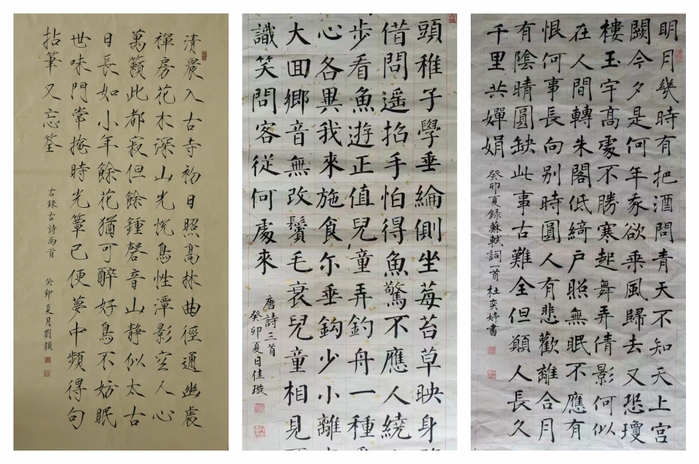 清晨入古寺初日照高林曲徑通幽處
禪房花木深山光悅鳥性潭影空人心
萬籟此都寂但餘鐘磬音山静似太古
日長如小年餘花猶可醉好鳥不妨眠
世味門常掩時光簟已便夢中頻得句
拈筆又忘筌
右録古詩兩首
癸卯夏月劉
頭稚子學垂綸側坐莓苔草映身
借問遥招手怕得魚驚不應人繞
步看魚遊正值兒童弄釣舟一種
心各異我來施食尔垂鈎少小離
大回鄉音無改鬢毛衰兒童相見
識笑問客從何處來
唐詩三首
癸卯夏日佳璇
明月幾時有把酒問青天不知天上宮
闕今夕是何年我欲乘風歸去又恐瓊
樓玉宇高處不勝寒起舞弄清影何似
在人間轉朱閣低綺户照無眠不應有
恨何事長向别時圓人有悲歡離合月
有陰晴圓缺此事古難全但願人長久
千里共嬋娟
癸卯夏録蘇軾詞一首杜奕婷書